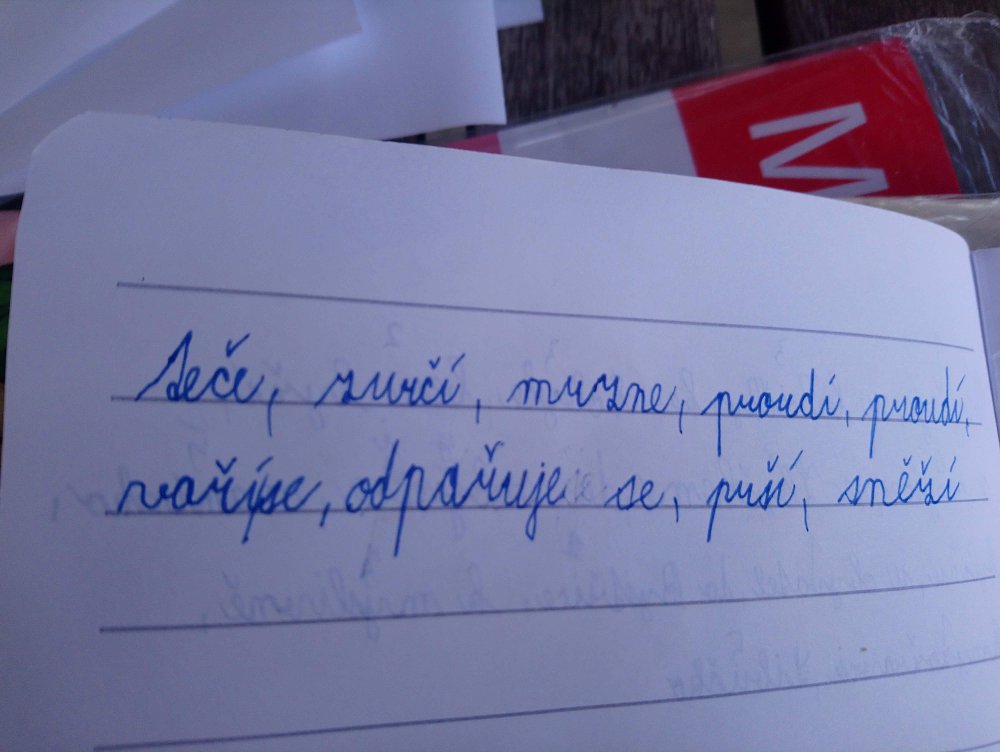 M
teče, zurčí, mrzne, proudí, proudí,
vaříse, odpařuje se, prší, sněží